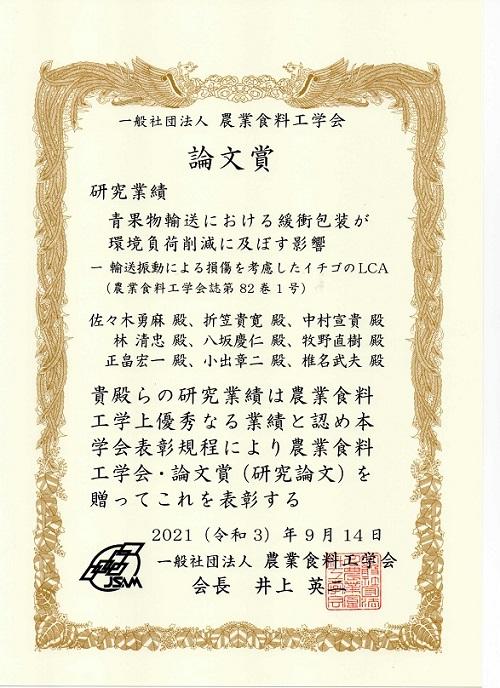 一般社団法人 農業食料工学会
論文賞
研究業績
青果物輸送における緩衝包装が
環境負荷削減に及ぼす影響
― 輸送振動による損傷を考慮したイチゴのLCA
（農業食料工学会誌第82巻1号）
佐々木勇麻 殿、折笠貴寛 殿、中村宣貴 殿
林 清忠 殿、八坂慶仁 殿、牧野直樹 殿
正畠宏一 殿、小出章二 殿、椎名武夫 殿
貴殿らの研究業績は農業食料
工学上優秀なる業績と認め本
学会表彰規程により農業食料
工学会・論文賞（研究論文）を
贈ってこれを表彰する
2021（令和3）年9月14日
JSAM
一般社団法人 農業食料工学会
会長 井上 英二